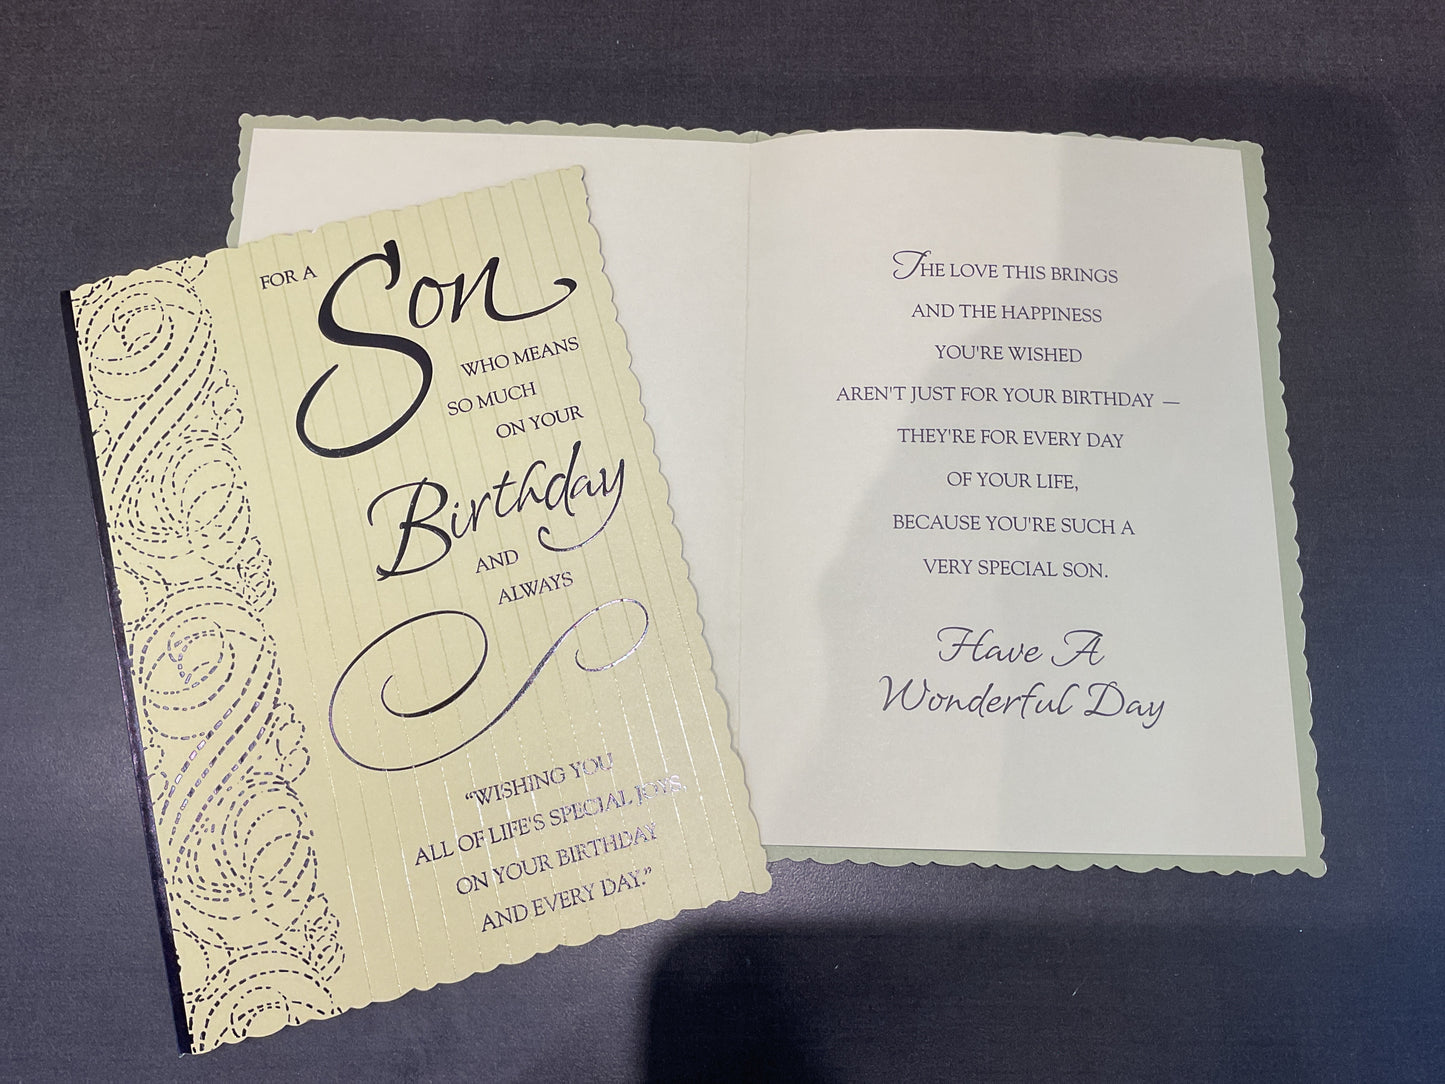 FOR A
Son
WHO MEANS
SO MUCH
ON YOUR
Birthday
AND
ALWAYS
“WISHING YOU
ALL OF LIFE'S SPECIAL JOYS,
ON YOUR BIRTHDAY
AND EVERY DAY.”
THE LOVE THIS BRINGS
AND THE HAPPINESS
YOU'RE WISHED
AREN'T JUST FOR YOUR BIRTHDAY —
THEY'RE FOR EVERY DAY
OF YOUR LIFE,
BECAUSE YOU'RE SUCH A
VERY SPECIAL SON.
Have A
Wonderful Day